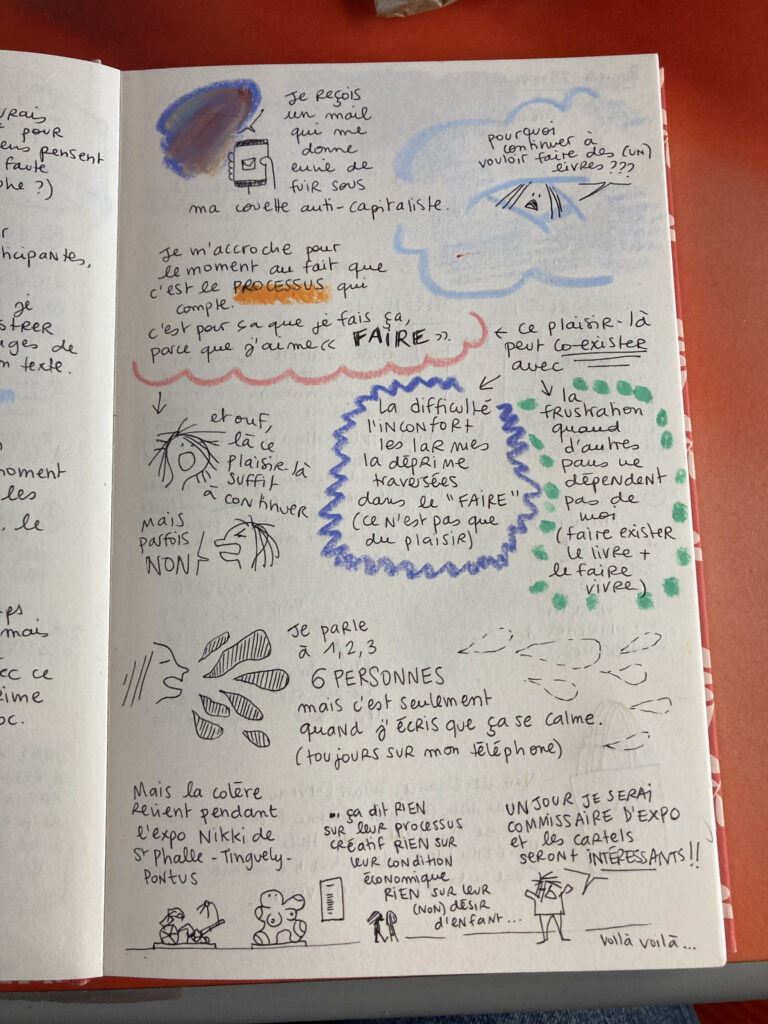 vrais
pour
ens pensent
faute
phe ?)
ticipantes,
je
ages de
n texte.
moment
les
. le
mais
ec ce
rime
oc.
Je reçois
un mail
qui me
donne
envie de
fuir sous
ma couette anti-capitaliste.
pourquoi
continuer à
vouloir faire des (un)
livres ???
Je m'accroche pour
le moment au fait que
c'est le PROCESSUS qui
compte.
c'est pour ça que je fais ça,
parce que j'aime « FAIRE ».
← ce plaisir-là
peut co-exister
avec
et ouf,
là ce
plaisir-là
suffit
à continuer
Mais
parfois
NON
La difficulté
l'inconfort
les larmes
la déprime
traversées
dans le "FAIRE"
(ce n'est pas que
du plaisir)
la
frustration
quand
d'autres
pans ne
dépendent
pas de
moi
(faire exister
le livre +
le faire
vivre)
Je parle
à 1, 2, 3
6 PERSONNES
mais c'est seulement
quand j'écris que ça se calme.
(toujours sur mon téléphone)
Mais la colère
revient pendant
l'expo Nikki de
St Phalle - Tinguely -
Pontus
... ça dit RIEN
sur leur processus
créatif RIEN sur
leur condition
économique
RIEN sur leur
(non) désir
d'enfant...
UN JOUR JE SERAI
COMMISSAIRE D'EXPO
et les cartels
seront INTÉRESSANTS !!
voilà voilà...